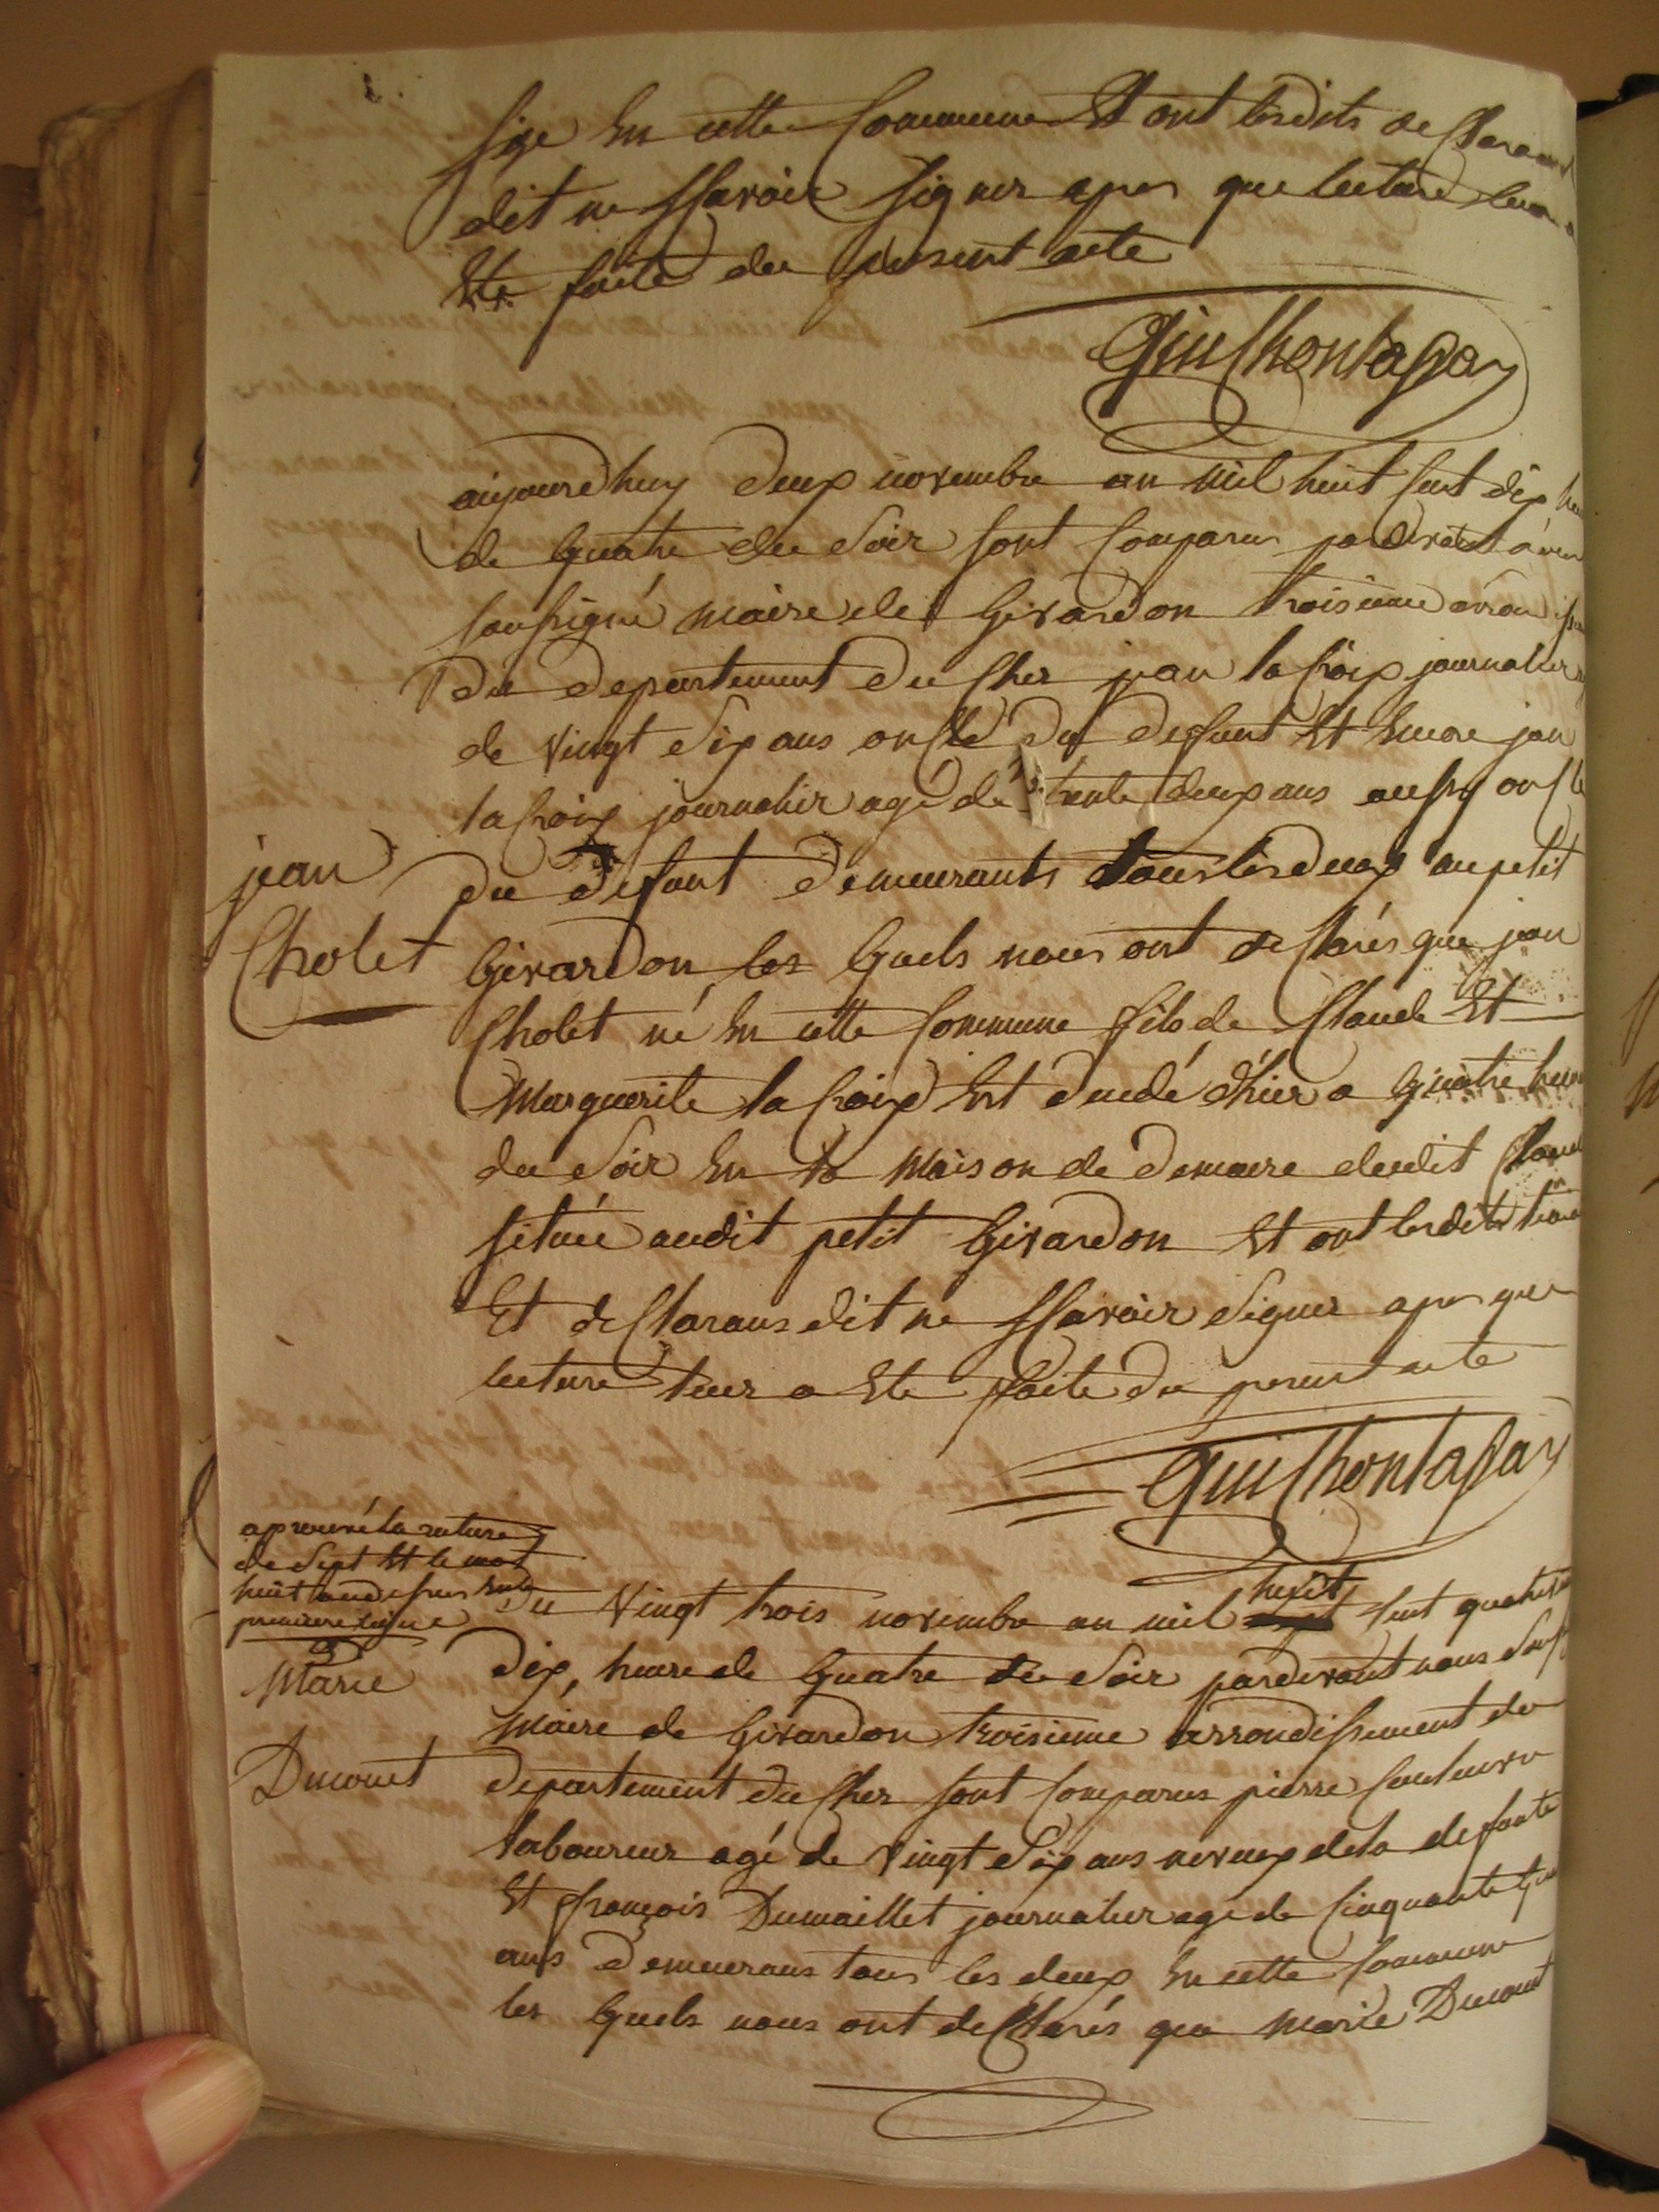 sise en cette Commune Et ont lesdits declarant
dit ne sçavoir signer apres que lecture leur a
Ete faite du present acte
Guilhontagay
aujourdhuy deux novembre an mil huit cent dix heure
de quatre du Soir sont Comparus pardevant nous
soussigné maire de Givardon troisieme
du departement du Cher jean la Croix journalier
de vingt Six ans oncle du deffunt Et Encore jean
la Croix journalier agé de trente deux ans aussy oncle
jean
Cholet
du defunt demeurants tous les deux au petit
Givardon les quels nous ont declarés que jean
Cholet né En cette Commune fils de Claude Et
Marguerite la Croix Est decedé d'hier a quatre heure
du Soir En la Maison de demeure dudit Claude
situeé audit petit Givardon Et ont lesdits
Et declarans dit ne sçavoir Signer apres que
lecture leur a Ete faite du present acte
Guilhontagay
aprouvé la rature
de Sept Et le mot
huit au dessus
premiere ligne
Marie
Ducouet
Du vingt trois novembre an mil huit cent
dix, heure de quatre du Soir pardevant nous
Maire de Givardon troisieme arrondissement du
departement du Cher sont Comparus pierre
laboureur agé de vingt Six ans neveux de la defunte
Et françois Dumaillet journalier agé de Cinquante
ans demeurans tous les deux En cette Commune
les quels nous ont declarés que Marie Ducouet